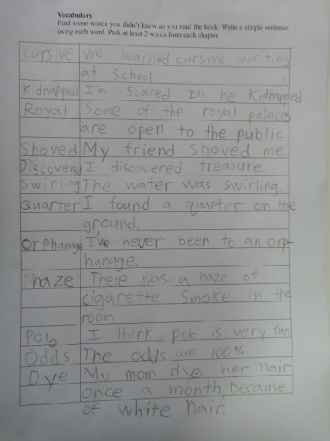 Vocabulary
Find some words you didn't know as you read the book. Write a simple sentence
using each word. Pick at least 2 words from each chapter.
cursive we learned cursive writing
at school.
Kidnapped I'm scared I'll be Kidnapped
Royal Some of the royal palaces
are open to the public.
Shoved My friend shoved me
Discovered I discovered treasure.
Swirling The water was swirling.
Quarter I found a quarter on the
ground.
Orphanage I've never been to an orp-
hanage.
haze There was a haze of
cigarette smoke in the
room
Pob I think pob is very fun
Odds The odds are 100%
Dye My mom dye her hair
once a month because
of white hair.